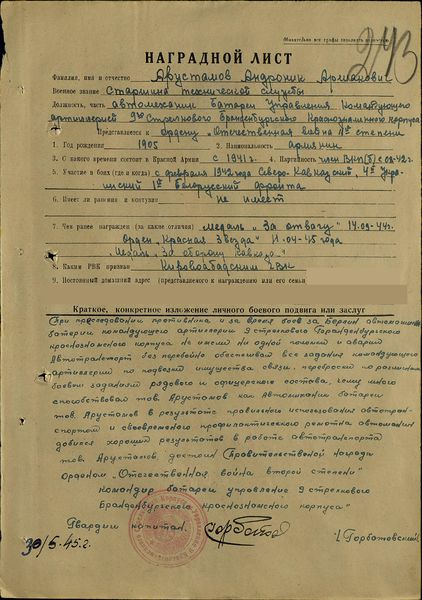 Желательно все графы заполнять полностью
243
НАГРАДНОЙ ЛИСТ
Фамилия, имя и отчество Арустамов Андроник Аршакович
Военное звание Старшина технической службы
Должность, часть автомеханик батареи Управления Командующего
артиллерией 9го Стрелкового Бранденбургского Краснознаменного корпуса
Представляется к ордену „Отечественная война IIой степени
1. Год рождения 1905 2. Национальность армянин
3. С какого времени состоит в Красной Армии с 1941 г. 4. Партийность член ВКП(б) с 1942 г.
5. Участие в боях (где и когда) с февраля 1942 года Северо-Кавказский, 4й Укра-
инский 1й Белорусский фронта
6. Имеет ли ранения и контузии не имеет
7. Чем ранее награжден (за какие отличия) медаль „За отвагу" 14-09-44г.
Орден „Красная Звезда" 11-04-45 года
Медаль „За оборону Кавказа"
8. Каким РВК призван Кировабадским ГВК
9. Постоянный домашний адрес (представляемого к награждению или его семьи
Краткое, конкретное изложение личного боевого подвига или заслуг
При преследовании противника и за время боев за Берлин автомашины
батареи командующего артиллерией 9 стрелкового Бранденбургского
краснознаменного корпуса не имели ни одной поломки и аварии
Автотранспорт без перебойно обеспечивал все задания командующего
артиллерией по подвозки имущества связи, переброски по различным
боевым заданиям рядового и офицерского состава, чему много
способствовал тов. Арустамов как Автомеханик батареи
тов. Арустамов в результате правильного использования автотран-
спортом и своевременного профилактического ремонта автомашин
добился хороших результатов в работе автотранспорта
тов. Арустамов, достоин Правительственной награды
Орденом „Отечественная война второй степени"
командир батареи управления 9 стрелкового
Бранденбургского краснознаменного корпуса"
Гвардии капитан Горбатовский /Горбатовский
30/5.45.г.